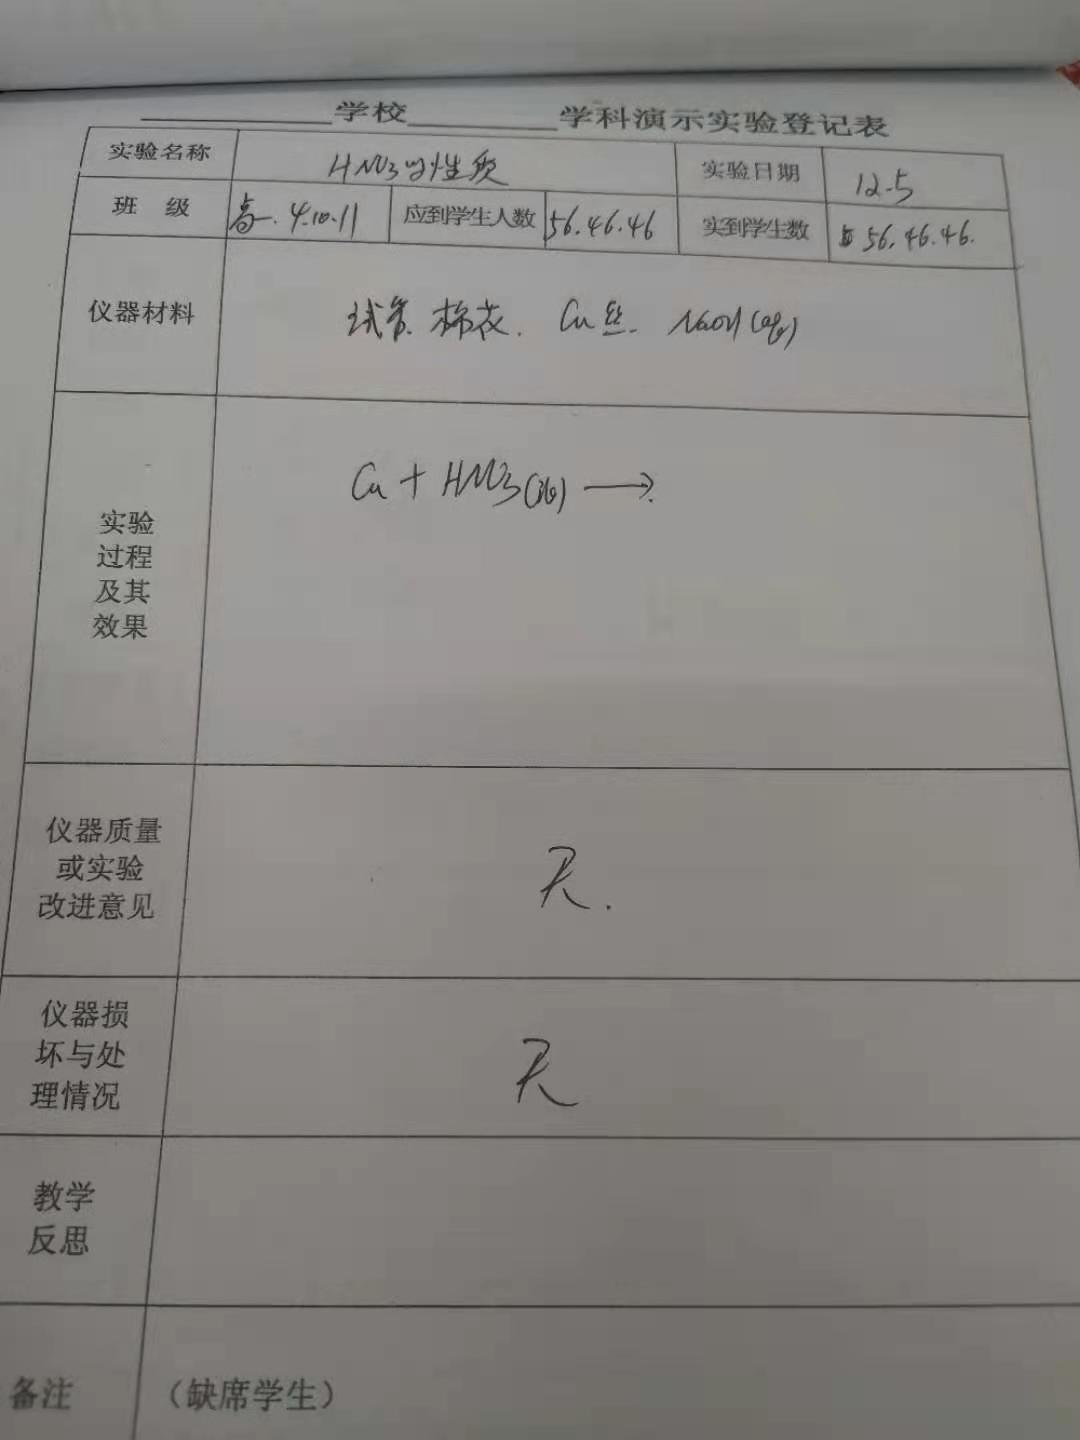 学校 学科演示实验登记表
实验名称 HNO3的性质 实验日期 12.5
班 级 高一.4.10.11 应到学生人数 56.46.46 实到学生数 56.46.46.
仪器材料 试管.棉花. Cu丝. NaOH(aq)
Cu + HNO3(浓) ⟶.
实验
过程
及其
效果
仪器质量
或实验
改进意见
无.
仪器损
坏与处
理情况
无
教学
反思
备注 (缺席学生)